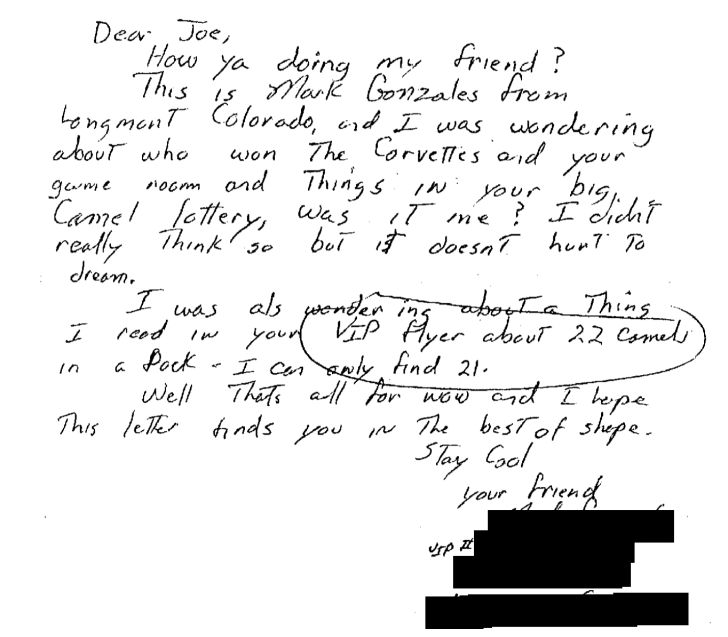 Dear Joe,
How ya doing my friend?
This is Mark Gonzales from
Longmont Colorado, and I was wondering
about who won The Corvettes and your
game room and Things in your big
Camel lottery, was it me? I didnt
really Think so but it doesnt hurt To
dream.
I was als wondering about a Thing
I read in your VIP flyer about 22 Camels
in a Pack - I can only find 21.
Well Thats all for now and I hope
This letter finds you in The best of shape.
Stay Cool
your friend
VIP #